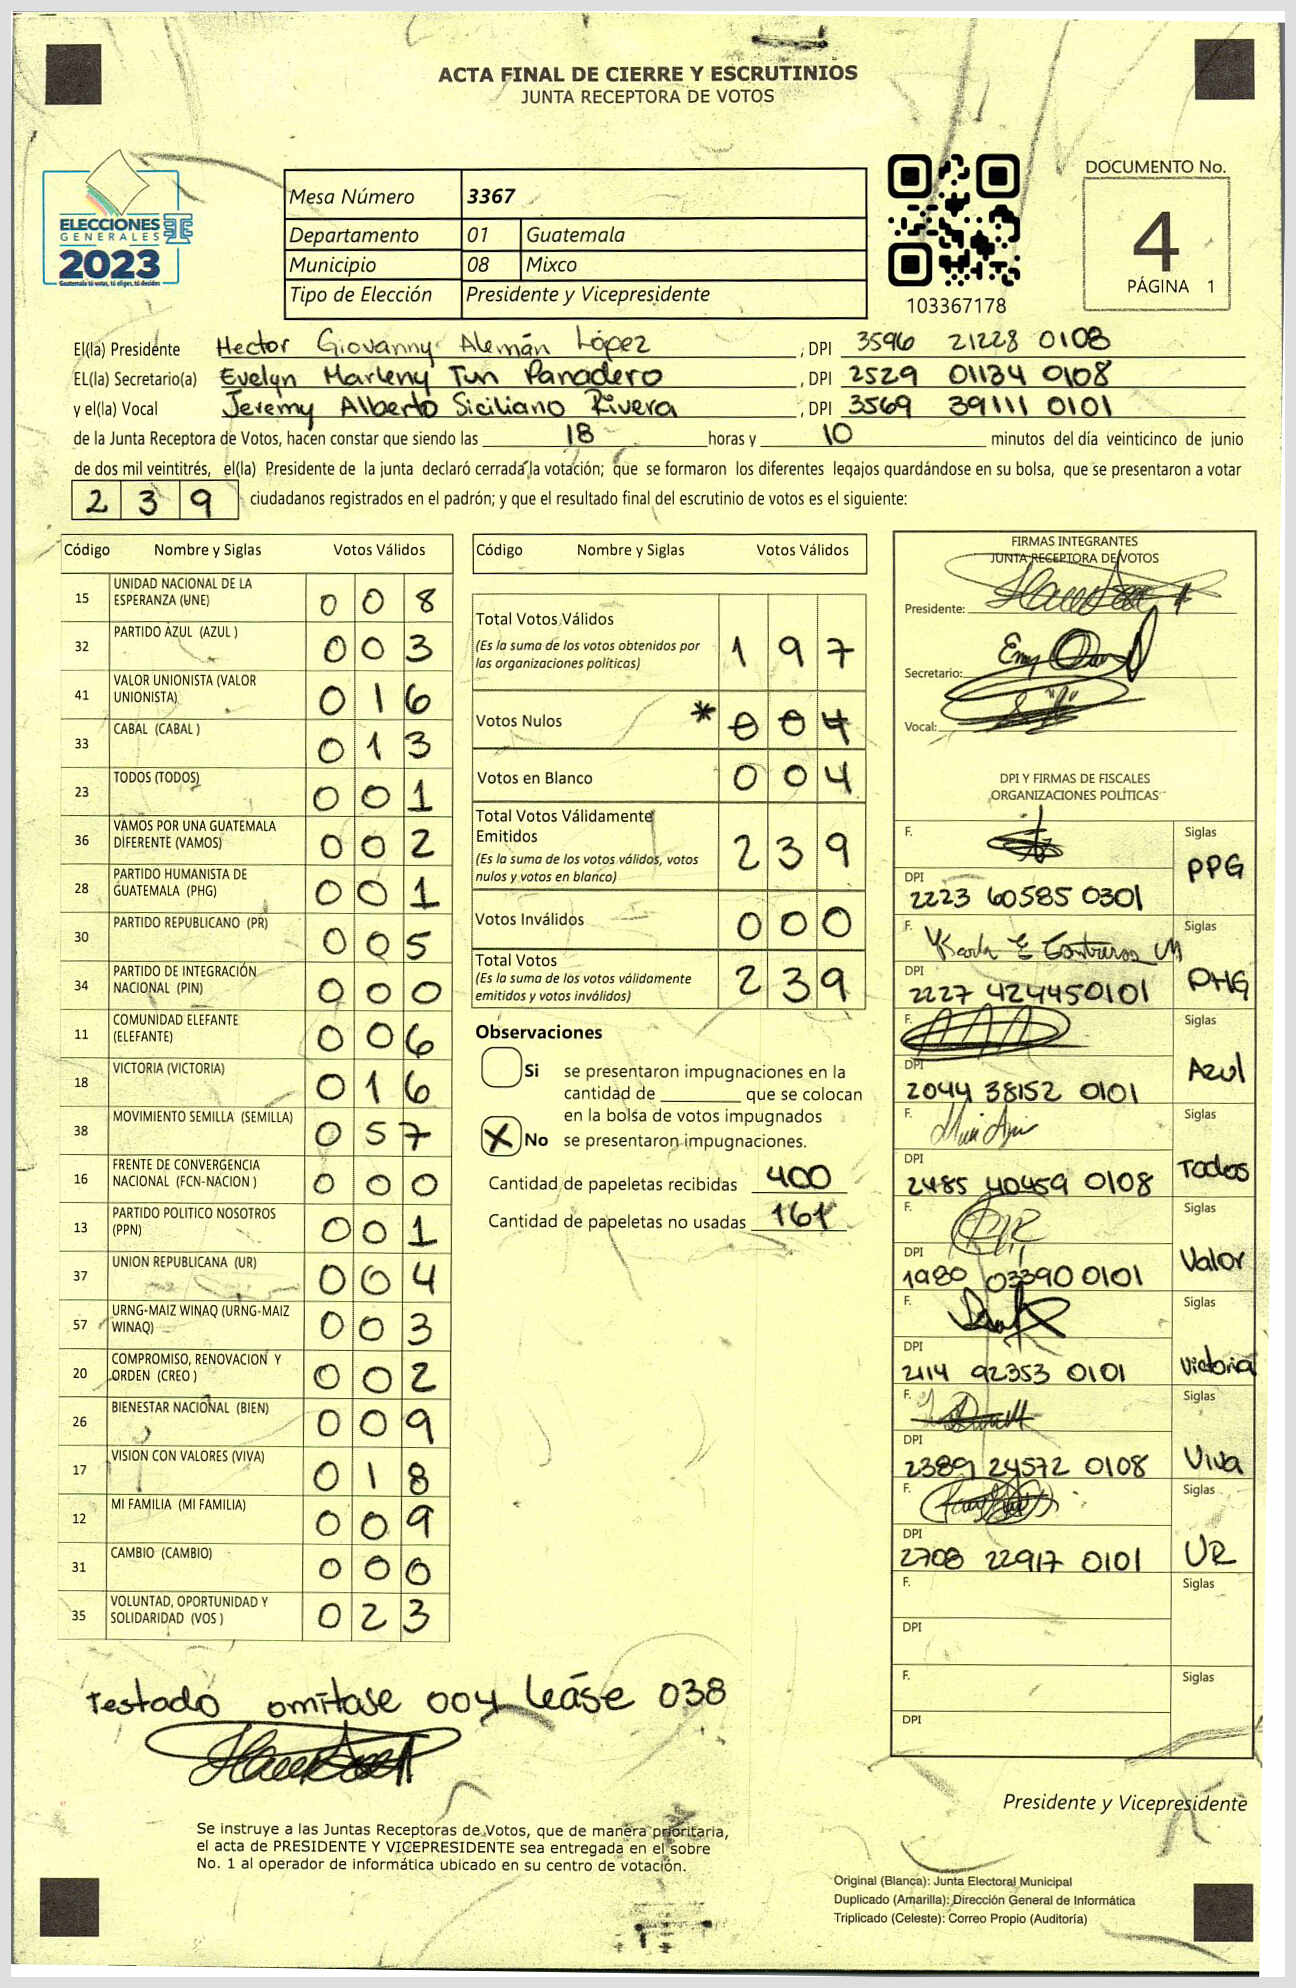 ACTA FINAL DE CIERRE Y ESCRUTINIOS
JUNTA RECEPTORA DE VOTOS
ELECCIONES
GENERALES
2023
Guatemala tú votas, tú eliges, tú decides
Mesa Número 3367
Departamento 01 Guatemala
Municipio 08 Mixco
Tipo de Elección Presidente y Vicepresidente
103367178
DOCUMENTO No.
4
PÁGINA 1
El(la) Presidente Hector Giovanny Alemán López , DPI 3596 21228 0108
EL(la) Secretario(a) Evelyn Marleny Tun Panadero , DPI 2529 01134 0108
y el(la) Vocal Jeremy Alberto Siciliano Rivera , DPI 3569 39111 0101
de la Junta Receptora de Votos, hacen constar que siendo las 18 horas y 10 minutos del día veinticinco de junio
de dos mil veintitrés, el(la) Presidente de la junta declaró cerrada la votación; que se formaron los diferentes legajos quardándose en su bolsa, que se presentaron a votar
239 ciudadanos registrados en el padrón; y que el resultado final del escrutinio de votos es el siguiente:
Código Nombre y Siglas Votos Válidos
15 UNIDAD NACIONAL DE LA ESPERANZA (UNE) 008
32 PARTIDO AZUL (AZUL ) 003
41 VALOR UNIONISTA (VALOR UNIONISTA) 016
33 CABAL (CABAL ) 013
23 TODOS (TODOS) 001
36 VAMOS POR UNA GUATEMALA DIFERENTE (VAMOS) 002
28 PARTIDO HUMANISTA DE GUATEMALA (PHG) 001
30 PARTIDO REPUBLICANO (PR) 005
34 PARTIDO DE INTEGRACIÓN NACIONAL (PIN) 000
11 COMUNIDAD ELEFANTE (ELEFANTE) 006
18 VICTORIA (VICTORIA) 016
38 MOVIMIENTO SEMILLA (SEMILLA) 057
16 FRENTE DE CONVERGENCIA NACIONAL (FCN-NACION ) 000
13 PARTIDO POLITICO NOSOTROS (PPN) 001
37 UNION REPUBLICANA (UR) 004
57 URNG-MAIZ WINAQ (URNG-MAIZ WINAQ) 003
20 COMPROMISO, RENOVACION Y ORDEN (CREO ) 002
26 BIENESTAR NACIONAL (BIEN) 009
17 VISION CON VALORES (VIVA) 018
12 MI FAMILIA (MI FAMILIA) 009
31 CAMBIO (CAMBIO) 000
35 VOLUNTAD, OPORTUNIDAD Y SOLIDARIDAD (VOS ) 023
Código Nombre y Siglas Votos Válidos
Total Votos Válidos 197
(Es la suma de los votos obtenidos por
las organizaciones políticas)
Votos Nulos * 004
Votos en Blanco 004
Total Votos Válidamente
Emitidos 239
(Es la suma de los votos válidos, votos
nulos y votos en blanco)
Votos Inválidos 000
Total Votos 239
(Es la suma de los votos válidamente
emitidos y votos inválidos)
Observaciones
Si se presentaron impugnaciones en la
cantidad de ________ que se colocan
en la bolsa de votos impugnados
X No se presentaron impugnaciones.
Cantidad de papeletas recibidas 400
Cantidad de papeletas no usadas 161
FIRMAS INTEGRANTES
JUNTA RECEPTORA DE VOTOS
Presidente:
Secretario:
Vocal:
DPI Y FIRMAS DE FISCALES
ORGANIZACIONES POLÍTICAS
F. Siglas PPG
DPI 2223 60585 0301
F. Karla E Contreras M Siglas PHG
DPI 2227 42445 0101
F. Siglas Azul
DPI 2044 38152 0101
F. Siglas Todos
DPI 2485 40459 0108
F. Siglas Valor
DPI 1980 03390 0101
F. Siglas Victoria
DPI 2114 92353 0101
F. Siglas Viva
DPI 2389 24572 0108
F. Siglas UR
DPI 2708 22917 0101
F. Siglas
DPI
F. Siglas
DPI
Testado omitase 004 leáse 038
Presidente y Vicepresidente
Se instruye a las Juntas Receptoras de Votos, que de manera prioritaria,
el acta de PRESIDENTE Y VICEPRESIDENTE sea entregada en el sobre
No. 1 al operador de informática ubicado en su centro de votación.
Original (Blanca): Junta Electoral Municipal
Duplicado (Amarilla): Dirección General de Informática
Triplicado (Celeste): Correo Propio (Auditoría)